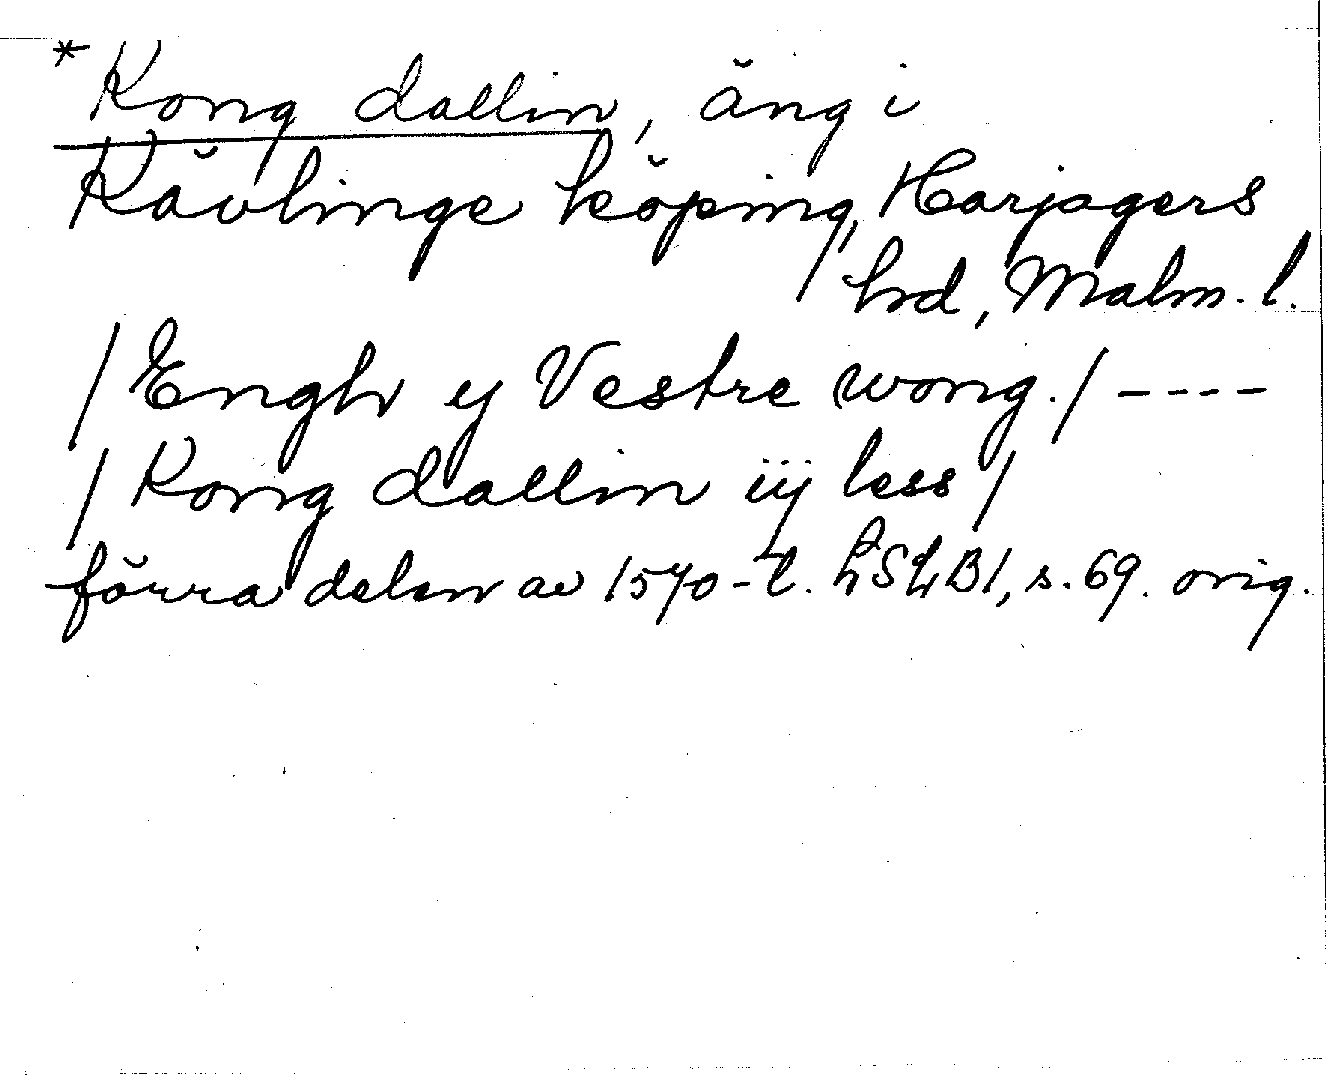 *Kong dallin, äng i
Kävlinge köping, Harjagers
hrd, Malm. l.
/Engh ij Vestre wong./----
/Kong dallin iij less/
förra delen av 1570-t. LSLB1, s. 69. orig.